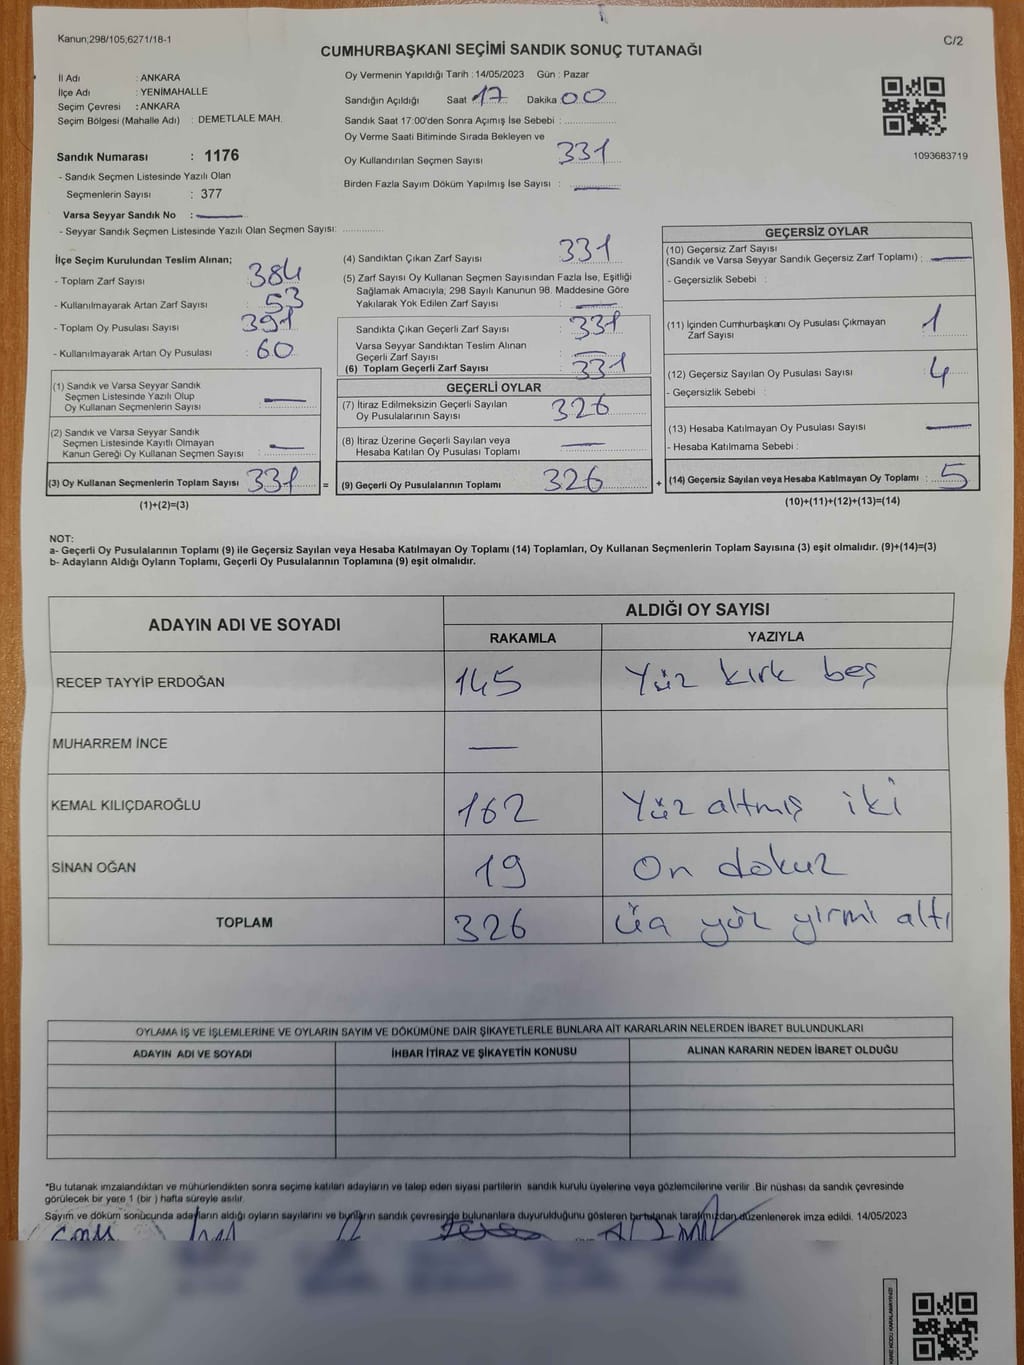 Kanun;298/105;6271/18-1
C/2
CUMHURBAŞKANI SEÇİMİ SANDIK SONUÇ TUTANAĞI
İl Adı : ANKARA
İlçe Adı : YENİMAHALLE
Seçim Çevresi : ANKARA
Seçim Bölgesi (Mahalle Adı) : DEMETLALE MAH.
Sandık Numarası : 1176
- Sandık Seçmen Listesinde Yazılı Olan
Seçmenlerin Sayısı : 377
Varsa Seyyar Sandık No : —
- Seyyar Sandık Seçmen Listesinde Yazılı Olan Seçmen Sayısı: ............
Oy Vermenin Yapıldığı Tarih : 14/05/2023 Gün : Pazar
Sandığın Açıldığı Saat 17 Dakika 00
Sandık Saat 17:00'den Sonra Açımış İse Sebebi : ............
Oy Verme Saati Bitiminde Sırada Bekleyen ve
Oy Kullandırılan Seçmen Sayısı 331
Birden Fazla Sayım Döküm Yapılmış İse Sayısı : —
1093683719
İlçe Seçim Kurulundan Teslim Alınan;
- Toplam Zarf Sayısı : 384
- Kullanılmayarak Artan Zarf Sayısı : 53
- Toplam Oy Pusulası Sayısı : 391
- Kullanılmayarak Artan Oy Pusulası : 60
(1) Sandık ve Varsa Seyyar Sandık
Seçmen Listesinde Yazılı Olup
Oy Kullanan Seçmenlerin Sayısı : —
(2) Sandık ve Varsa Seyyar Sandık
Seçmen Listesinde Kayıtlı Olmayan
Kanun Gereği Oy Kullanan Seçmen Sayısı : —
(3) Oy Kullanan Seçmenlerin Toplam Sayısı : 331 =
(1)+(2)=(3)
(4) Sandıktan Çıkan Zarf Sayısı : 331
(5) Zarf Sayısı Oy Kullanan Seçmen Sayısından Fazla İse, Eşitliği
Sağlamak Amacıyla, 298 Sayılı Kanunun 98. Maddesine Göre
Yakılarak Yok Edilen Zarf Sayısı : —
Sandıkta Çıkan Geçerli Zarf Sayısı : 331
Varsa Seyyar Sandıktan Teslim Alınan
Geçerli Zarf Sayısı : —
(6) Toplam Geçerli Zarf Sayısı : 331
GEÇERLİ OYLAR
(7) İtiraz Edilmeksizin Geçerli Sayılan
Oy Pusulalarının Sayısı : 326
(8) İtiraz Üzerine Geçerli Sayılan veya
Hesaba Katılan Oy Pusulası Toplamı : —
(9) Geçerli Oy Pusulalarının Toplamı : 326 +
GEÇERSİZ OYLAR
(10) Geçersiz Zarf Sayısı
(Sandık ve Varsa Seyyar Sandık Geçersiz Zarf Toplamı) : —
- Geçersizlik Sebebi :
(11) İçinden Cumhurbaşkanı Oy Pusulası Çıkmayan
Zarf Sayısı : 1
(12) Geçersiz Sayılan Oy Pusulası Sayısı : 4
- Geçersizlik Sebebi :
(13) Hesaba Katılmayan Oy Pusulası Sayısı : —
- Hesaba Katılmama Sebebi :
(14) Geçersiz Sayılan veya Hesaba Katılmayan Oy Toplamı : 5
(10)+(11)+(12)+(13)=(14)
NOT:
a- Geçerli Oy Pusulalarının Toplamı (9) ile Geçersiz Sayılan veya Hesaba Katılmayan Oy Toplamı (14) Toplamları, Oy Kullanan Seçmenlerin Toplam Sayısına (3) eşit olmalıdır. (9)+(14)=(3)
b- Adayların Aldığı Oyların Toplamı, Geçerli Oy Pusulalarının Toplamına (9) eşit olmalıdır.
ADAYIN ADI VE SOYADI
ALDIĞI OY SAYISI
RAKAMLA YAZIYLA
RECEP TAYYİP ERDOĞAN 145 Yüz kırk beş
MUHARREM İNCE —
KEMAL KILIÇDAROĞLU 162 Yüz altmış iki
SİNAN OĞAN 19 On dokuz
TOPLAM 326 üç yüz yirmi altı
OYLAMA İŞ VE İŞLEMLERİNE VE OYLARIN SAYIM VE DÖKÜMÜNE DAİR ŞİKAYETLERLE BUNLARA AİT KARARLARIN NELERDEN İBARET BULUNDUKLARI
ADAYIN ADI VE SOYADI İHBAR İTİRAZ VE ŞİKAYETİN KONUSU ALINAN KARARIN NEDEN İBARET OLDUĞU
*Bu tutanak imzalandıktan ve mühürlendikten sonra seçime katılan adayların ve talep eden siyasi partilerin sandık kurulu üyelerine veya gözlemcilerine verilir. Bir nüshası da sandık çevresinde
görülecek bir yere 1 (bir ) hafta süreyle asılır.
Sayım ve döküm sonucunda adayların aldığı oyların sayılarını ve bunların sandık çevresinde bulunanlara duyurulduğunu gösteren bu tutanak tarafımızdan düzenlenerek imza edildi. 14/05/2023